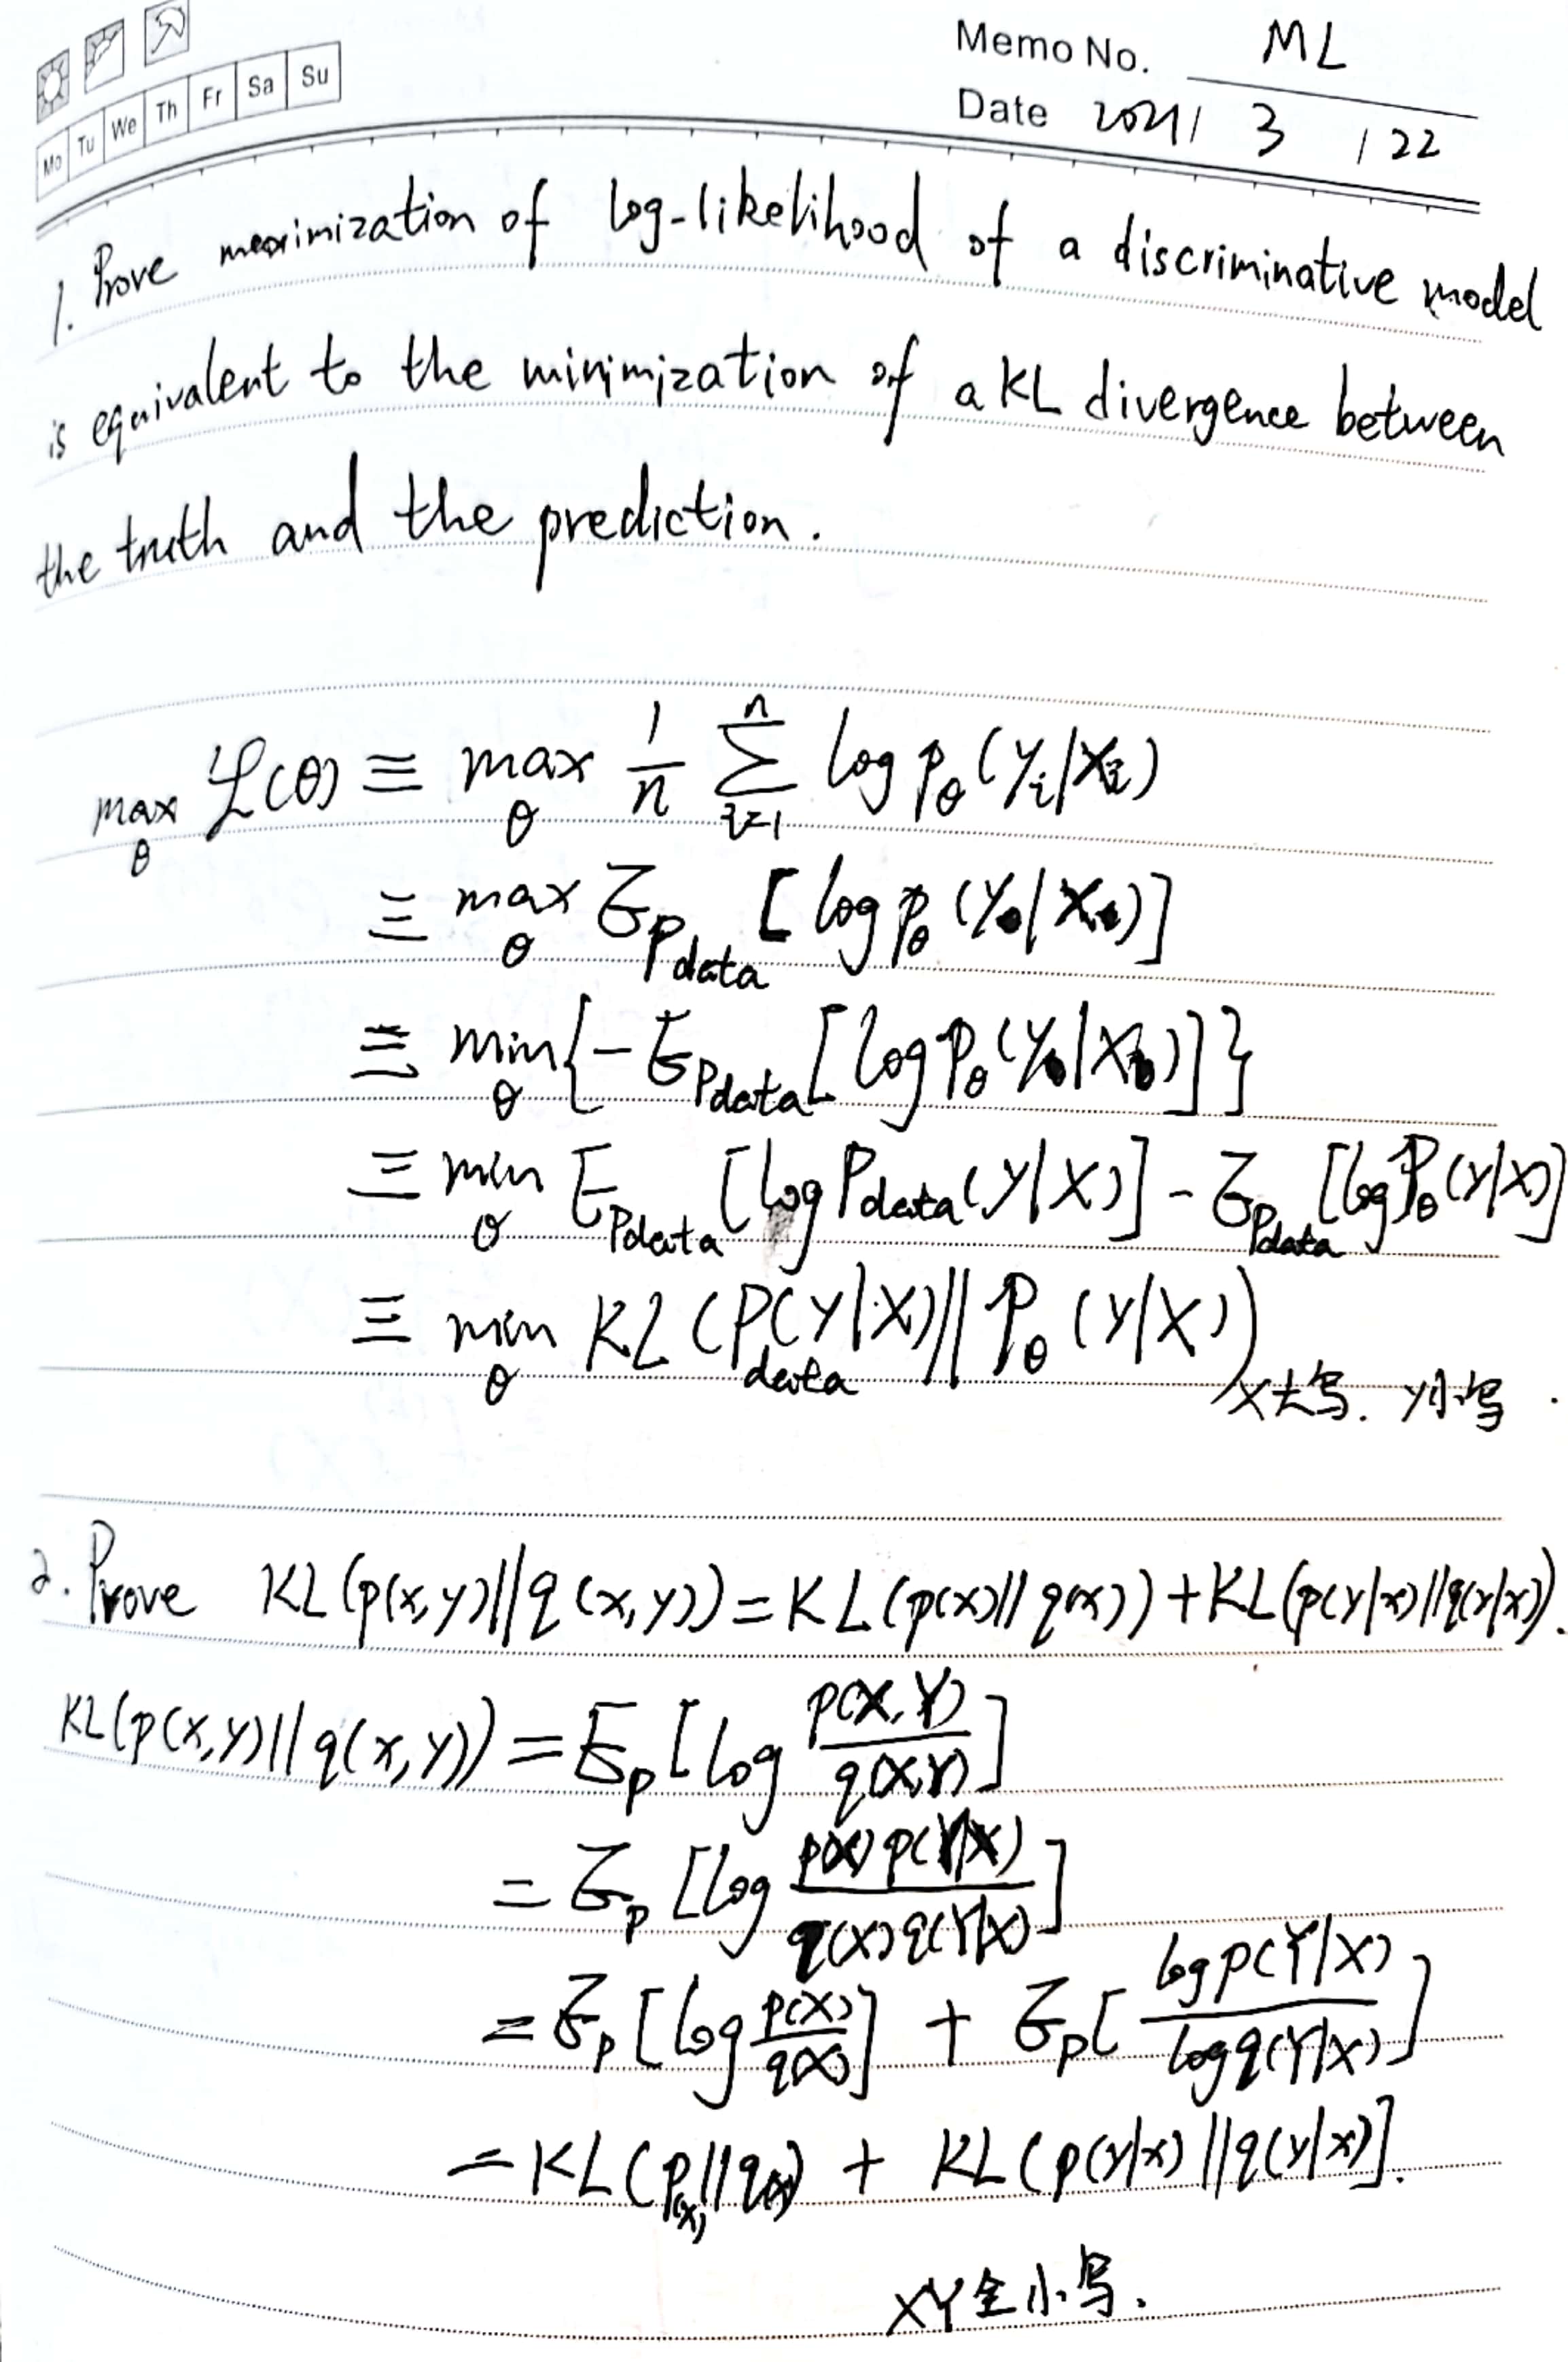 Memo No. ML
Mo Tu We Th Fr Sa Su
Date 2021 / 3 / 22
1. Prove maximization of log-likelihood of a discriminative model
is equivalent to the minimization of a KL divergence between
the truth and the prediction.
max_θ ℒ(θ) ≡ max_θ 1/n ∑_{i=1}^{n} log p_θ(y_i|X_i)
≡ max_θ E_{Pdata} [log p_θ(y|X)]
≡ min_θ {-E_{Pdata}[log p_θ(y|X)]}
≡ min_θ E_{Pdata}[log Pdata(y|X)] - E_{Pdata}[log P_θ(y|X)]
≡ min_θ KL(P_{data}(y|X)||P_θ(y|X))
X大写. y小写.
2. Prove KL(p(x,y)||q(x,y))=KL(p(x)||q(x))+KL(p(y|x)||q(y|x)).
KL(p(x,y)||q(x,y))=E_p[log p(X,Y)/q(X,Y)]
=E_p[log p(X)p(Y|X)/q(X)q(Y|X)]
=E_p[log p(X)/q(X)] + E_p[log p(Y|X)/log q(Y|X)]
=KL(p(x)||q(x)) + KL(p(y|x)||q(y|x)].
XY全小写.